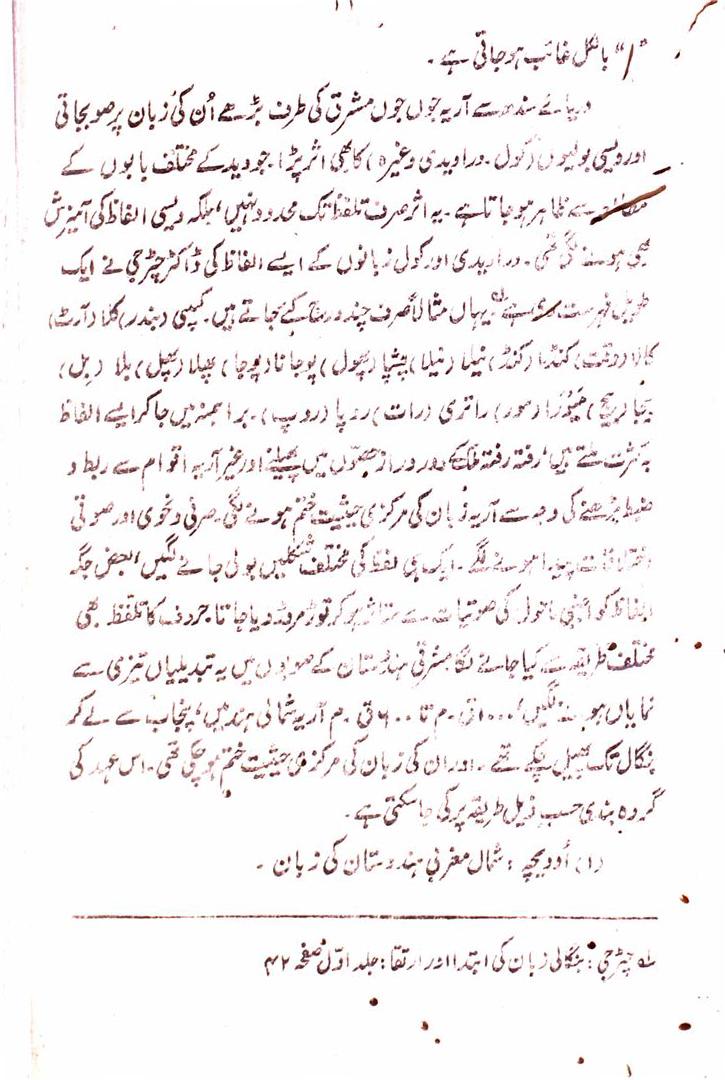 ۱۱
"ا" بالکل غائب ہو جاتی ہے۔
دریائے سندھ سے آریہ جوں جوں مشرق کی طرف بڑھے اُن کی زبان پر صوبجاتی
اور دیسی بولیوں (کول۔ دراویدی وغیرہ) کا بھی اثر پڑا۔ جو وید کے مختلف بابوں کے
مطالعہ سے ظاہر ہو جاتا ہے۔ یہ اثر صرف تلفظ تک محدود نہیں، بلکہ دیسی الفاظ کی آمیزش
بھی ہونے لگی تھی۔ دراویدی اور کول زبانوں کے ایسے الفاظ کی ڈاکٹر چٹرجی نے ایک
طویل فہرست دی ہے لہ یہاں مثالاً صرف چند درج کیے جاتے ہیں۔ کپپی (بندر) کلا (آرٹ)
کالا (وقت) کنڈا (کنڈ) نیلا (نیلا) پشپا (پھول) پوجانا (پوجا) پھلا (پھل) بلا (بل)
بیجا (بیج) میورا (مور) راتری (رات) روپا (روپ)۔ براہمنز میں جا کر ایسے الفاظ
بہ کثرت ملتے ہیں، رفتہ رفتہ ملک کے دور دراز حصوں میں پھیلنے اور غیر آریہ اقوام سے ربط و
ضبط بڑھنے کی وجہ سے آریہ زبان کی مرکزی حیثیت ختم ہونے لگی۔ صرفی و نحوی اور صوتی
اختلافات پیدا ہونے لگے۔ ایک ہی لفظ کی مختلف شکلیں بولی جانے لگیں، بعض جگہ
الفاظ کو اپنی ماحول کی صوتیات سے متاثر ہو کر توڑ مروڑ دیا جاتا۔ حروف کا تلفظ بھی
مختلف طریقہ سے کیا جانے لگا مشرقی ہندستان کے صوبوں میں یہ تبدیلیاں تیزی سے
نمایاں ہونے لگیں، ۱۰۰۰ ق۔م تا ۶۰۰ ق۔م آریہ شمالی ہند میں، پنجاب سے لے کر
بنگال تک پھیل چکے تھے۔ اور ان کی زبان کی مرکزی حیثیت ختم ہو چکی تھی۔ اس عہد کی
گروہ بندی حسب ذیل طریقہ پر کی جا سکتی ہے۔
(۱) اُودیچہ : شمال مغربی ہندوستان کی زبان۔
لہ چٹرجی: بنگالی زبان کی ابتدا اور ارتقا: جلد اوّل صفحہ ۴۲